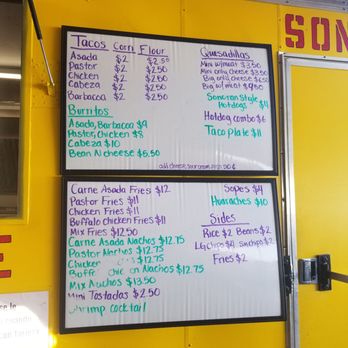 Tacos Corn Flour
Asada $2 $2.50
Pastor $2 $2.50
Chicken $2 $2.50
Cabeza $2 $2.50
Barbacoa $2 $2.50
Burritos
Asada, Barbacoa $9
Pastor, Chicken $8
Cabeza $10
Bean N cheese $6.50
Quesadillas
Mini w/meat $3.50
Mini only cheese $3.50
Big only cheese
Big w/meat
Sonoran Style
Hotdogs $11
Hotdog combo $6
Taco plate $11
add cheese, sour cream
Carne Asada Fries $12
Pastor Fries $11
Chicken Fries $11
Buffalo chicken Fries $11
Mix Fries $12.50
Carne Asada Nachos $12.75
Pastor Nachos $12.75
Chicken $12.75
Nachos $12.75
Mix Nachos $13.50
Mini Tostadas $2.50
Shrimp cocktail
Sopes $4
Huaraches $10
Sides
Rice $2 Beans $2
LG Chips $4 Sm chips $2
Fries $2
SON
E